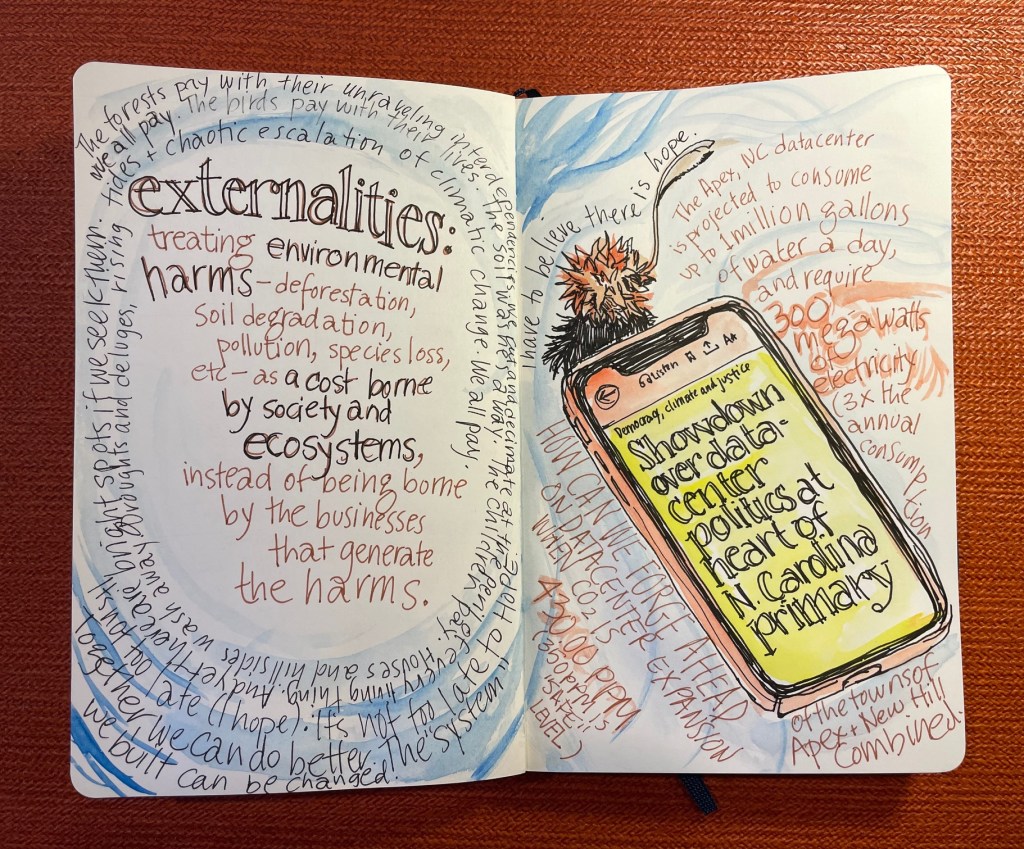 The forests pay with their unraveling interdependencies.
The birds pay with their lives. The soil washes away. The children pay.
Houses and hillsides wash away. Droughts and deluges, rising tides + chaotic escalation of climatic change. We all pay.
every living thing. And yet there are bright spots if we seek them.
we all pay.
externalities:
treating environmental
harms – deforestation,
soil degradation,
pollution, species loss,
etc – as a cost borne
by society and
ecosystems,
instead of being borne
by the businesses
that generate
the harms.
It's not too late (I hope).
Together we can do better. The "system"
we built can be changed!
I have to believe there is hope.
The Apex, NC datacenter
is projected to consume
up to 1 million gallons
of water a day,
and require
300
megawatts
of
electricity
(3x the
annual
consumption
of the towns of
Apex + New Hill
combined.
Listen
AA
Democracy, climate and justice
Showdown
over data-
center
politics at
heart of
N. Carolina
primary
HOW CAN WE FORGE AHEAD
ON DATACENTER EXPANSION
WHEN CO2 IS
430.00 PPM
(350 PPM IS
"SAFE"
LEVEL)